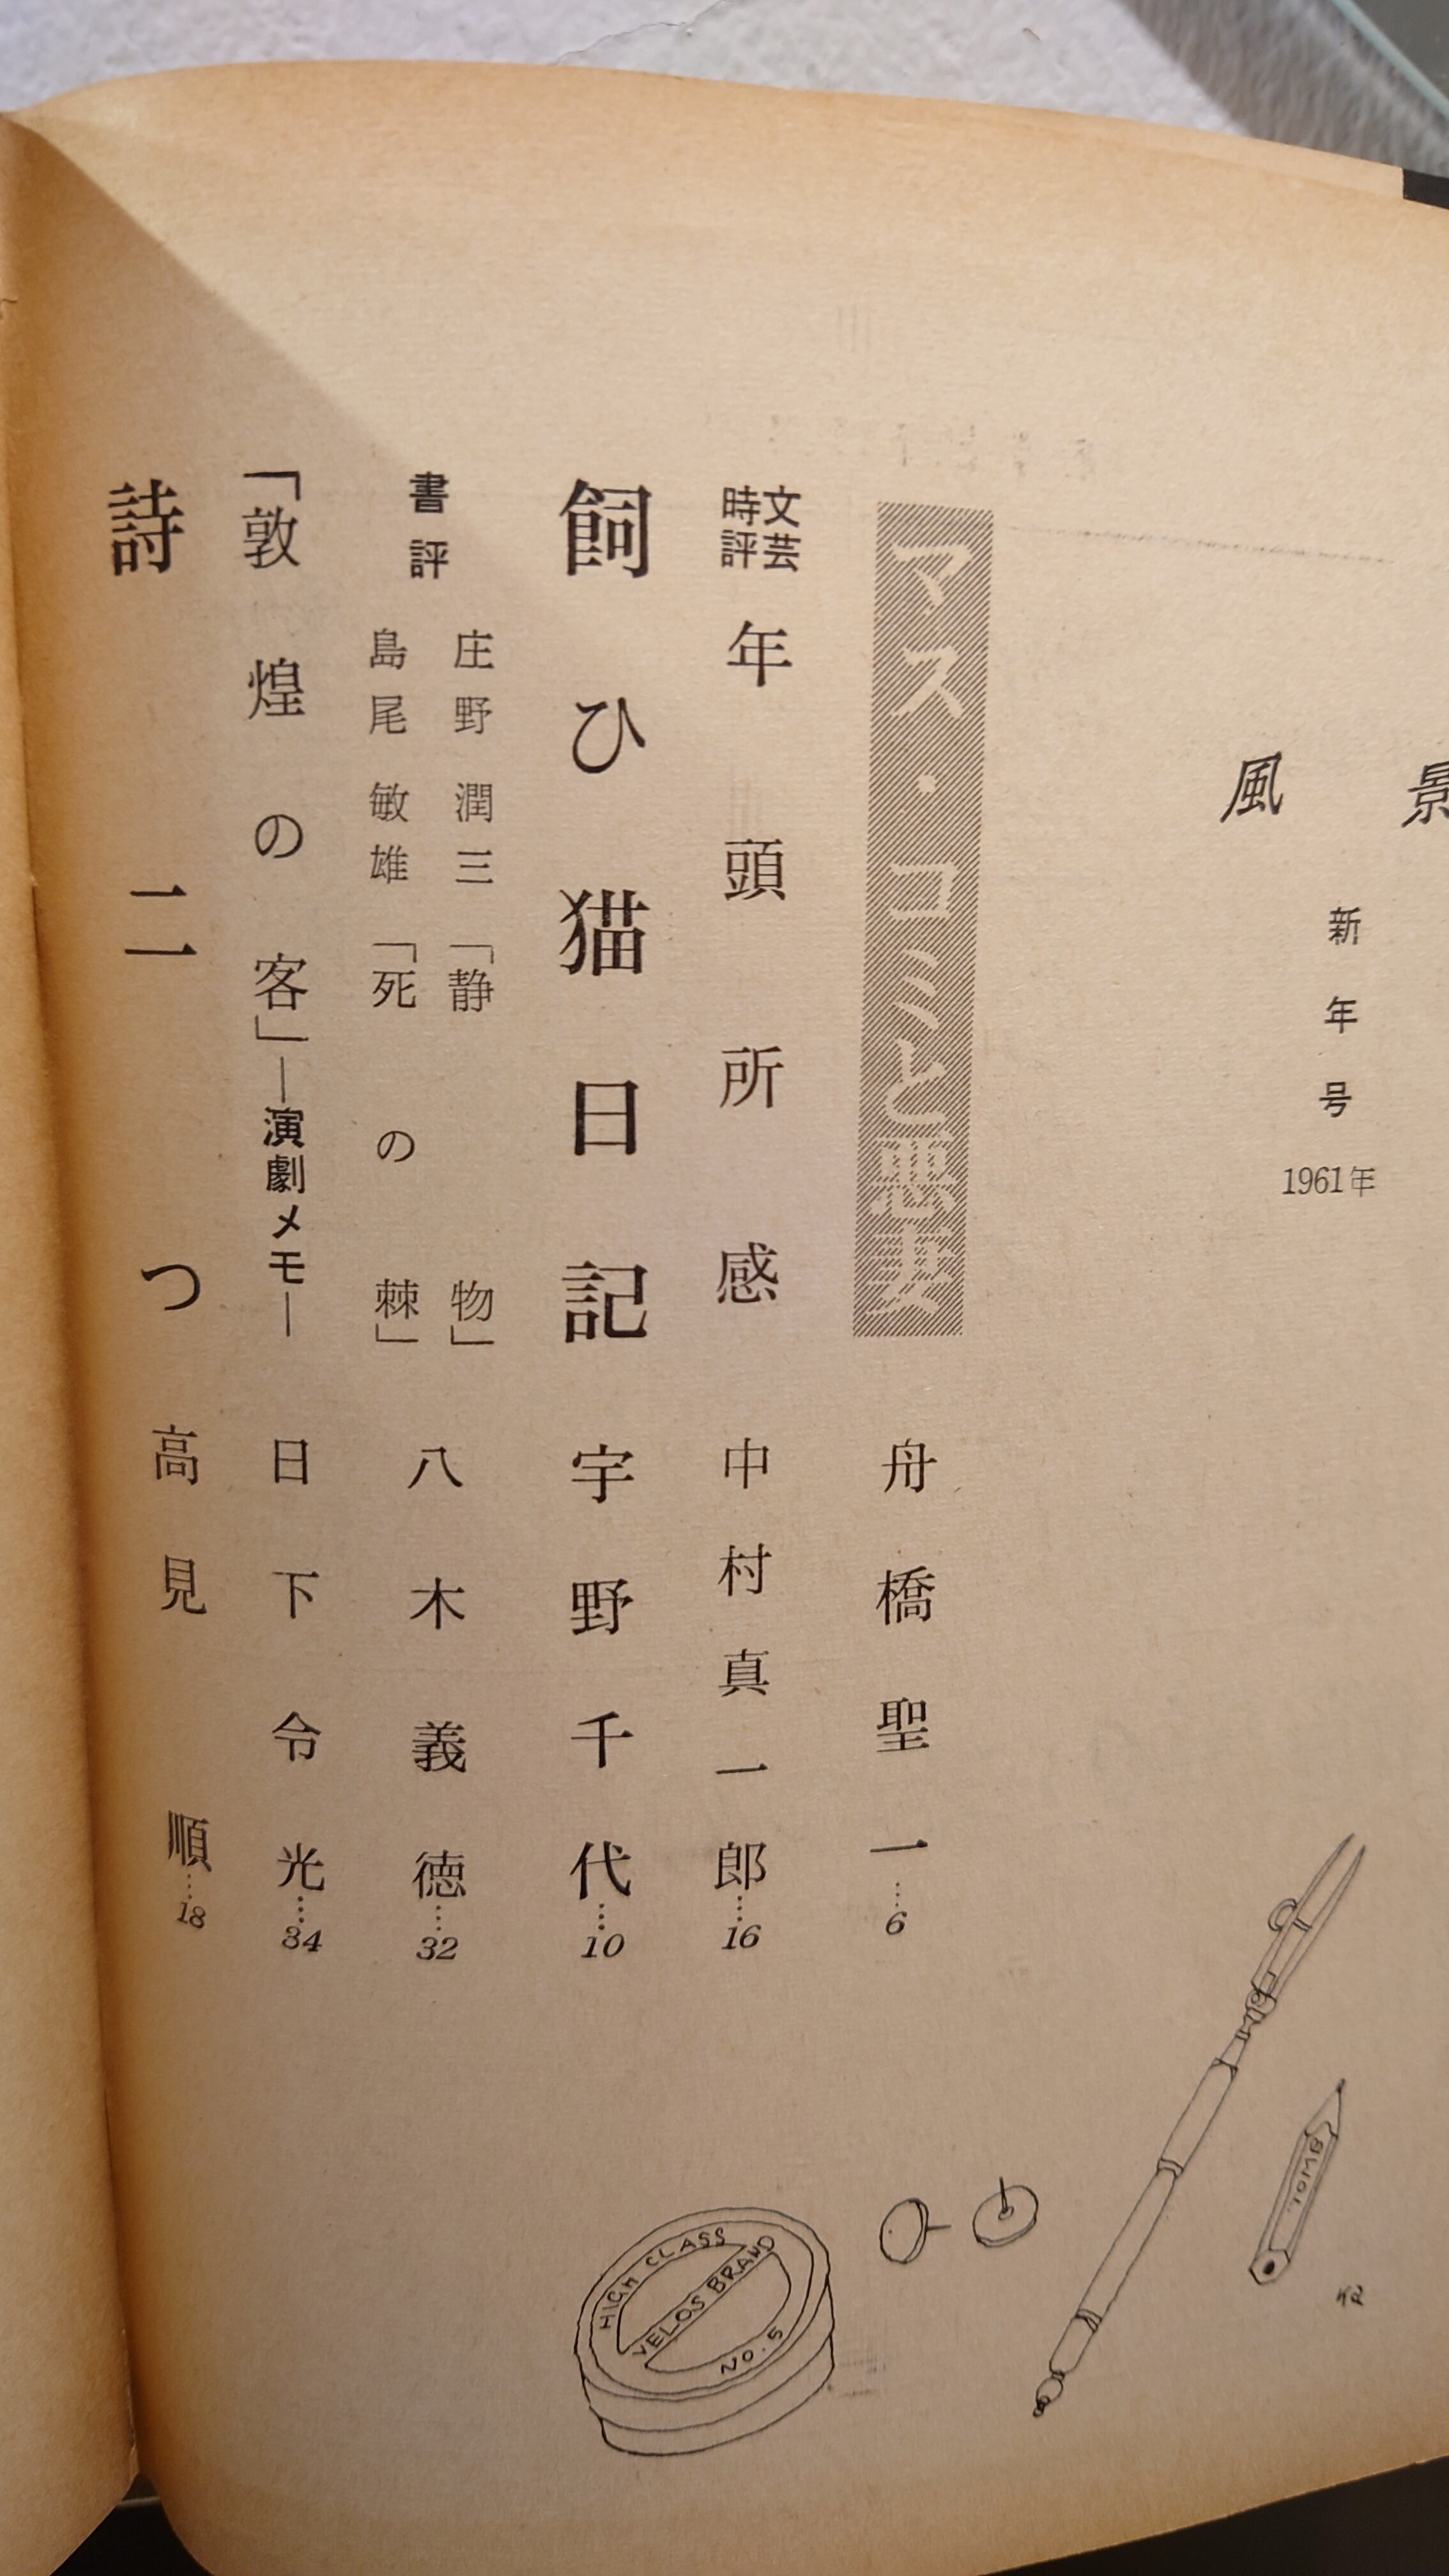 風景
新年号
1961年
マス・コミと悪妻
舟橋聖一…6
文芸時評
年頭所感
中村真一郎…16
飼ひ猫日記
宇野千代…10
書評
庄野潤三「静物」
島尾敏雄「死の棘」
八木義徳…32
「敦煌の客」―演劇メモ―
日下令光…34
詩二つ
高見順…18
HIGH CLASS
VELOS BRAND
NO.5